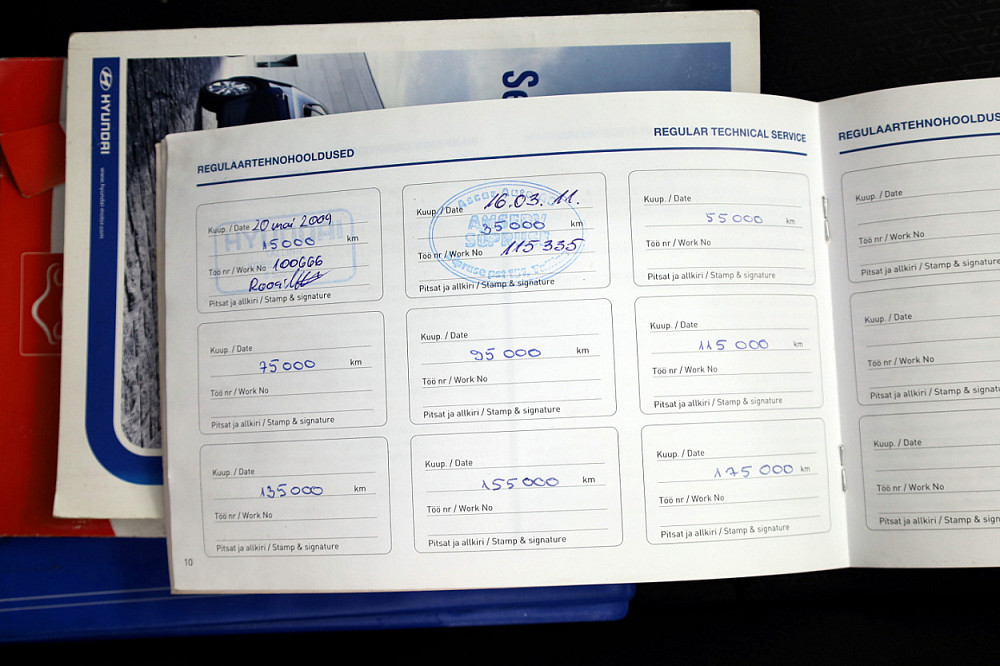 HYUNDAI
www.hyundai-motor.com
Se
REGULAARTEHNOHOOLDUSED
REGULAR TECHNICAL SERVICE
Kuup. / Date 20 mai 2009
15000 km
Töö nr / Work No 100666
Pitsat ja allkiri / Stamp & signature
HYUNDAI
Kuup. / Date 16.03.11.
35000 km
Töö nr / Work No 115335
Pitsat ja allkiri / Stamp & signature
Kuup. / Date
55000 km
Töö nr / Work No
Pitsat ja allkiri / Stamp & signature
Kuup. / Date
75000 km
Töö nr / Work No
Pitsat ja allkiri / Stamp & signature
Kuup. / Date
95000 km
Töö nr / Work No
Pitsat ja allkiri / Stamp & signature
Kuup. / Date
115000 km
Töö nr / Work No
Pitsat ja allkiri / Stamp & signature
Kuup. / Date
135000 km
Töö nr / Work No
Pitsat ja allkiri / Stamp & signature
Kuup. / Date
155000 km
Töö nr / Work No
Pitsat ja allkiri / Stamp & signature
Kuup. / Date
175000 km
Töö nr / Work No
Pitsat ja allkiri / Stamp & signature
10
REGULAARTEHNOHOOLDUS
Kuup. / Date
Töö nr / Work No
Pitsat ja allkiri / Stamp
Kuup. / Date
Töö nr / Work No
Pitsat ja allkiri / Stam
Kuup. / Date
Töö nr / Work No
Pitsat ja allkiri / Stam